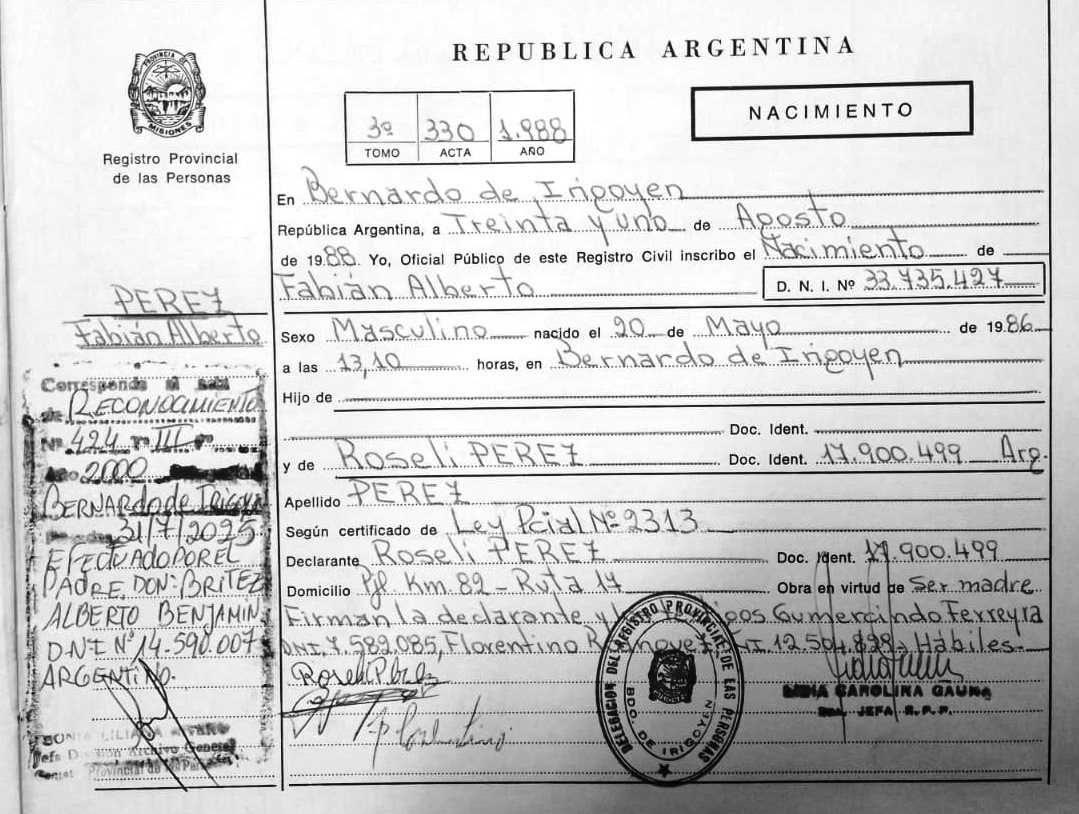 REPUBLICA ARGENTINA
PROVINCIA DE
MISIONES
Registro Provincial
de las Personas
3º 330 1.988
TOMO ACTA AÑO
NACIMIENTO
En Bernardo de Irigoyen
República Argentina, a Treinta y uno de Agosto
de 1988. Yo, Oficial Público de este Registro Civil inscribo el Nacimiento de
Fabián Alberto D. N. I. Nº 33.735.427
Sexo Masculino nacido el 20 de Mayo de 1986
a las 13,10 horas, en Bernardo de Irigoyen
Hijo de
Doc. Ident.
y de Roseli PEREZ Doc. Ident. 17.900.499 Arg.
Apellido PEREZ
Según certificado de Ley Pcial Nº 2313
Declarante Roseli PEREZ Doc. Ident. 17.900.499
Domicilio Km. 82 - Ruta 14 Obra en virtud de Ser madre
Firman la declarante y Gumercindo Ferreyra
DNI. 7.589.085, Florentino 12.504.829, Hábiles.
PEREZ
Fabián Alberto
Corresponde
de RECONOCIMIENTO
Nº 424 Tº III
Año 2000
BERNARDO de IRIGOYEN
31/7/2025
EFECTUADO POR EL
PADRE DON: BRITEZ
ALBERTO BENJAMIN
DNI Nº 14.590.007
ARGENTINO.
Jefa División Archivo General
Provincial de
DELEGACION DEL REGISTRO PROVINCIAL DE LAS PERSONAS
BDO. DE IRIGOYEN
LIDIA CAROLINA GAUNA
JEFA R.P.P.